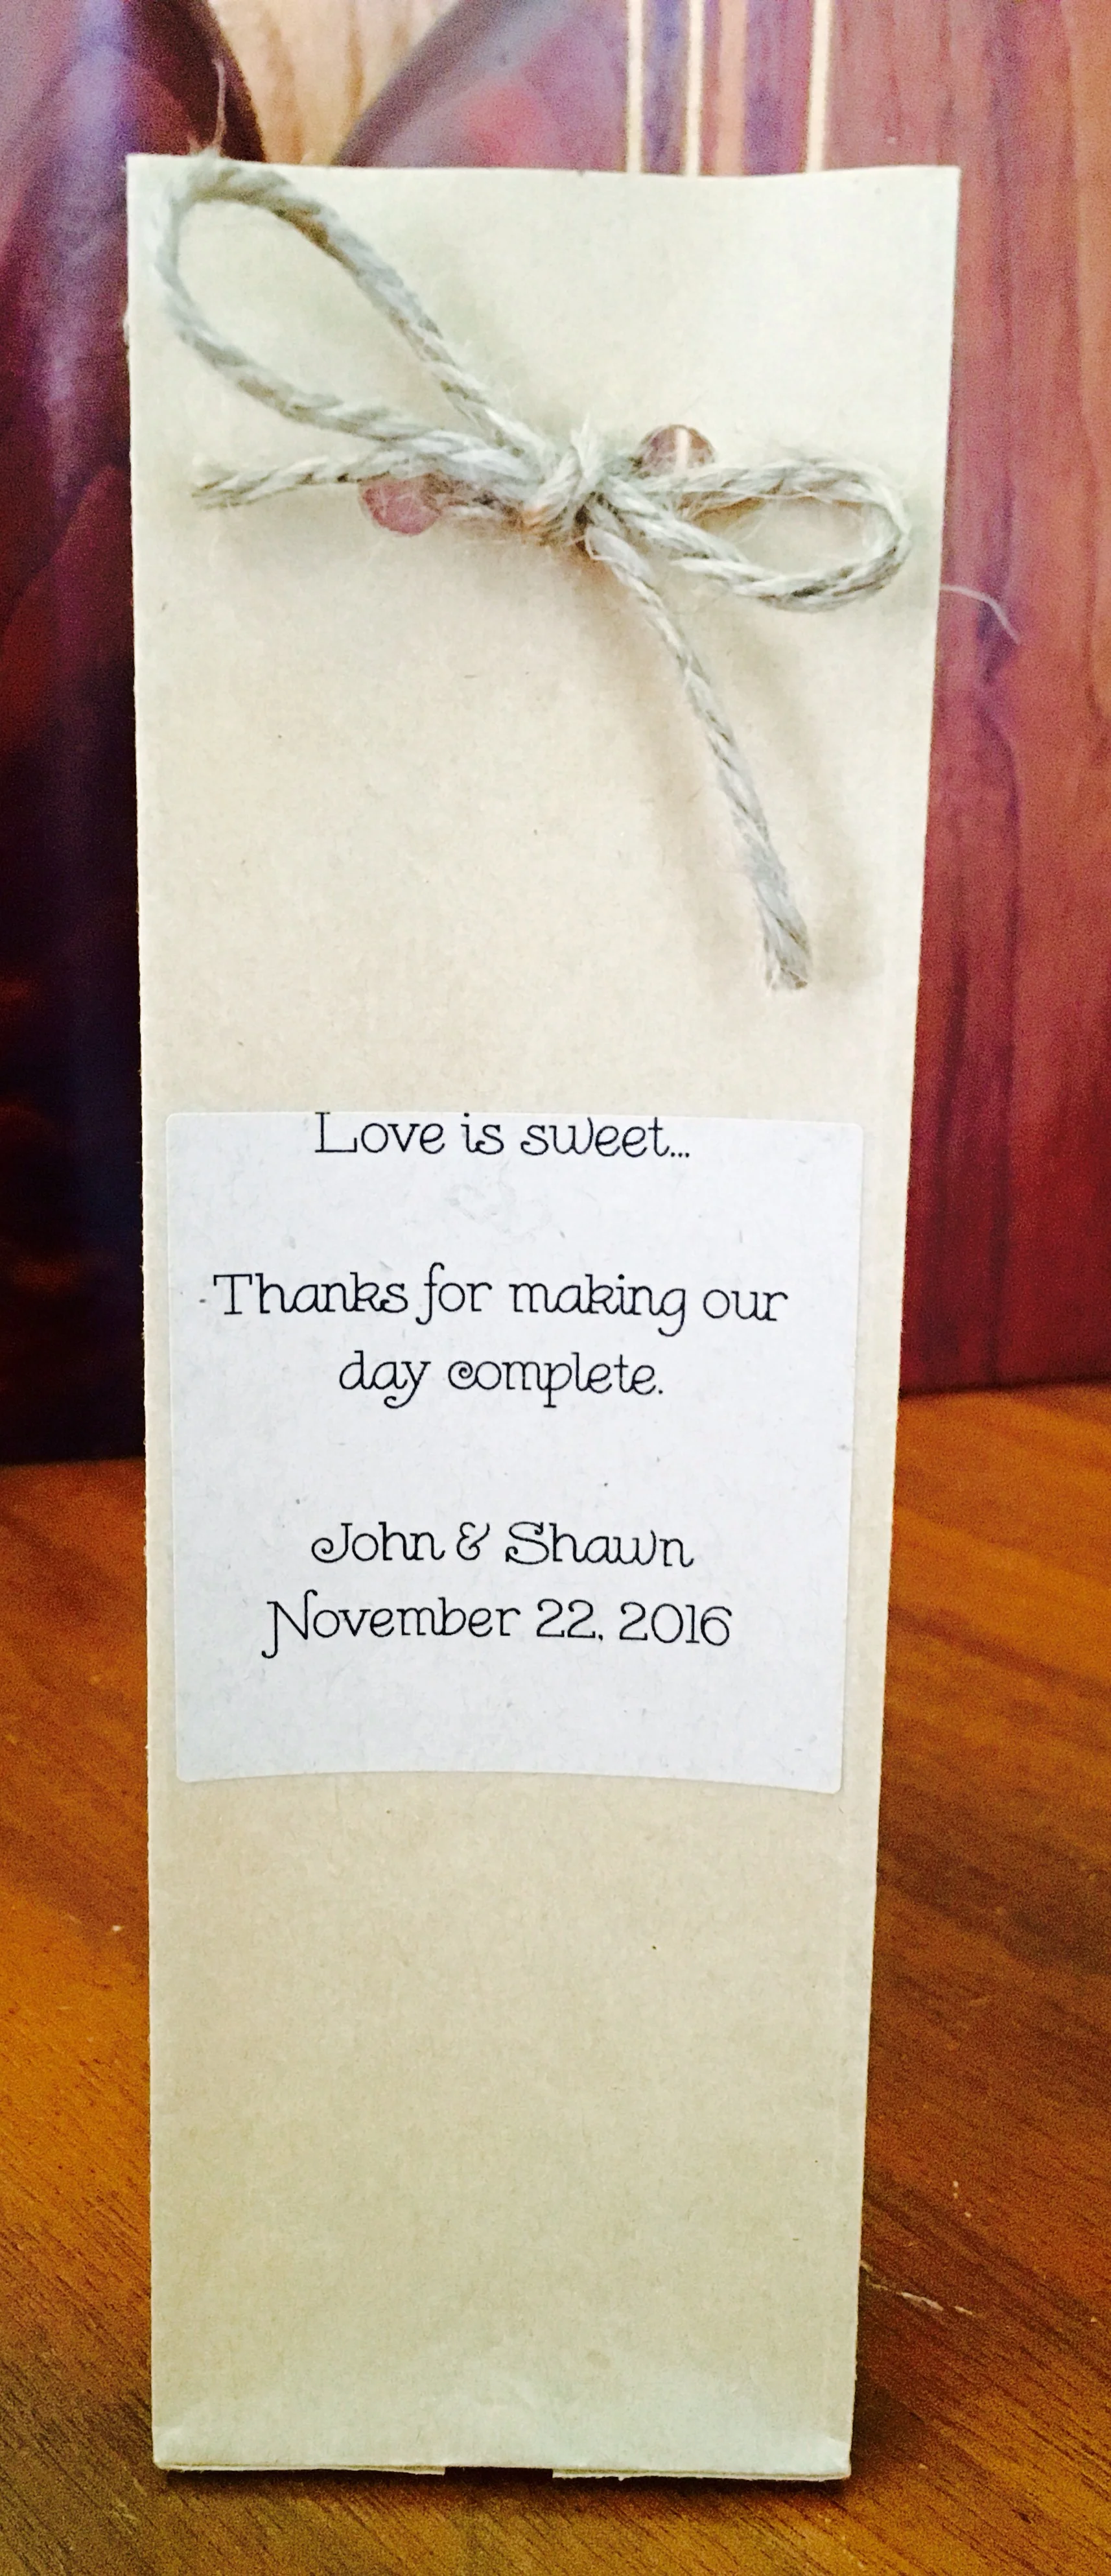 Love is sweet...
Thanks for making our
day complete.
John & Shawn
November 22, 2016